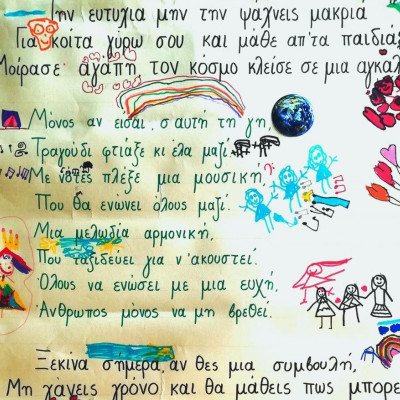 Την ευτυχία μην την ψάχνεις μακριά
Για κοίτα γύρω σου και μάθε απ'τα παιδιά
Μοίρασε αγάπη τον κόσμο κλείσε σε μια αγκαλ
Μόνος αν είσαι σ'αυτή τη γη,
Τραγούδι φτιάξε κι έλα μαζί
Με νότες πλέξε μια μουσική,
Που θα ενώνει όλους μαζί.
Μια μελωδία αρμονική,
Που ταξιδεύει για ν'ακουστεί.
Όλους να ενώσει με μια ευχή,
Άνθρωπος μόνος να μη βρεθεί.
Ξεκίνα σήμερα, αν θες μια συμβουλή,
Μη χάνεις χρόνο και θα μάθεις πως μπορε